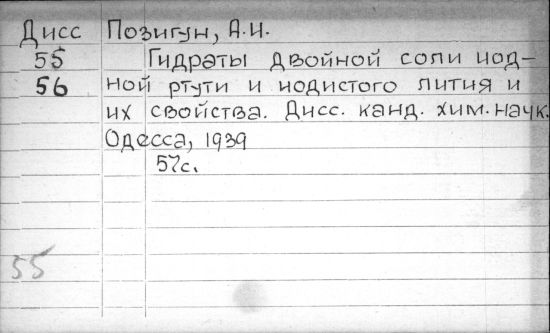 Дисс Позигун, А.И.
55 Гидраты двойной соли иод-
56 ной ртути и иодистого лития и
их свойства. Дисс. канд. хим. наук.
Одесса, 1939
57с.
55